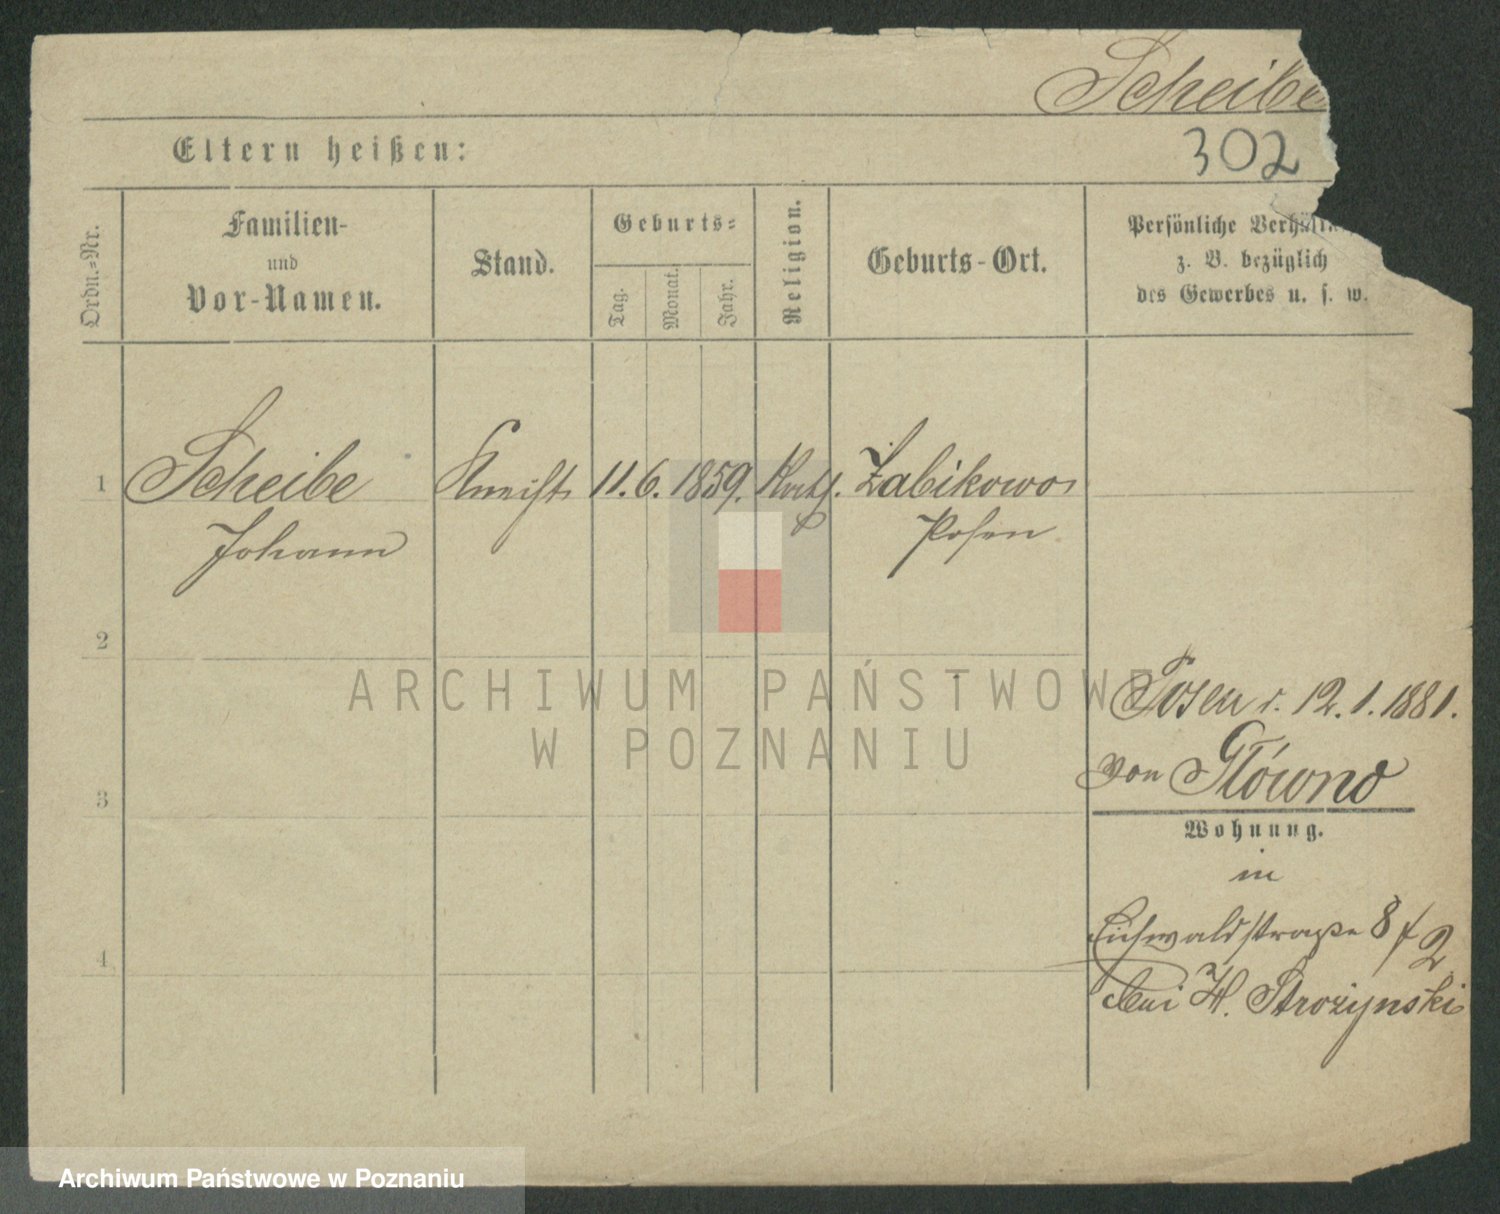 Scheibe
302
Eltern heißen:
Ordn.-Nr.
Familien-
und
Vor-Namen.
Stand.
Geburts-
Tag.
Monat.
Jahr.
Religion.
Geburts-Ort.
Persönliche
z. B. bezüglich
des Gewerbes u. s. w.
1 Scheibe Knecht 11. 6. 1859. Kath. Żabikowo
Johann Posen
2
3
4
Posen v. 12. 1. 1881.
von Główno
Wohnung.
in
Eichwaldstraße 8/2
bei H. Strożynski
ARCHIWUM PAŃSTWOWE
W POZNANIU
Archiwum Państwowe w Poznaniu